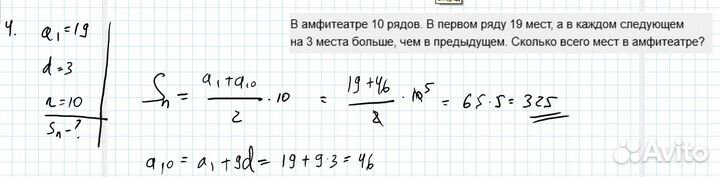 В амфитеатре 10 рядов. В первом ряду 19 мест, а в каждом следующем
на 3 места больше, чем в предыдущем. Сколько всего мест в амфитеатре?
4. a₁=19
d=3
n=10
Sₙ-?
Sₙ = (a₁+a₁₀)/2 · 10 = (19+46)/2 · 10⁵ = 65·5 = 325
a₁₀ = a₁+9d = 19+9·3 = 46
Avito